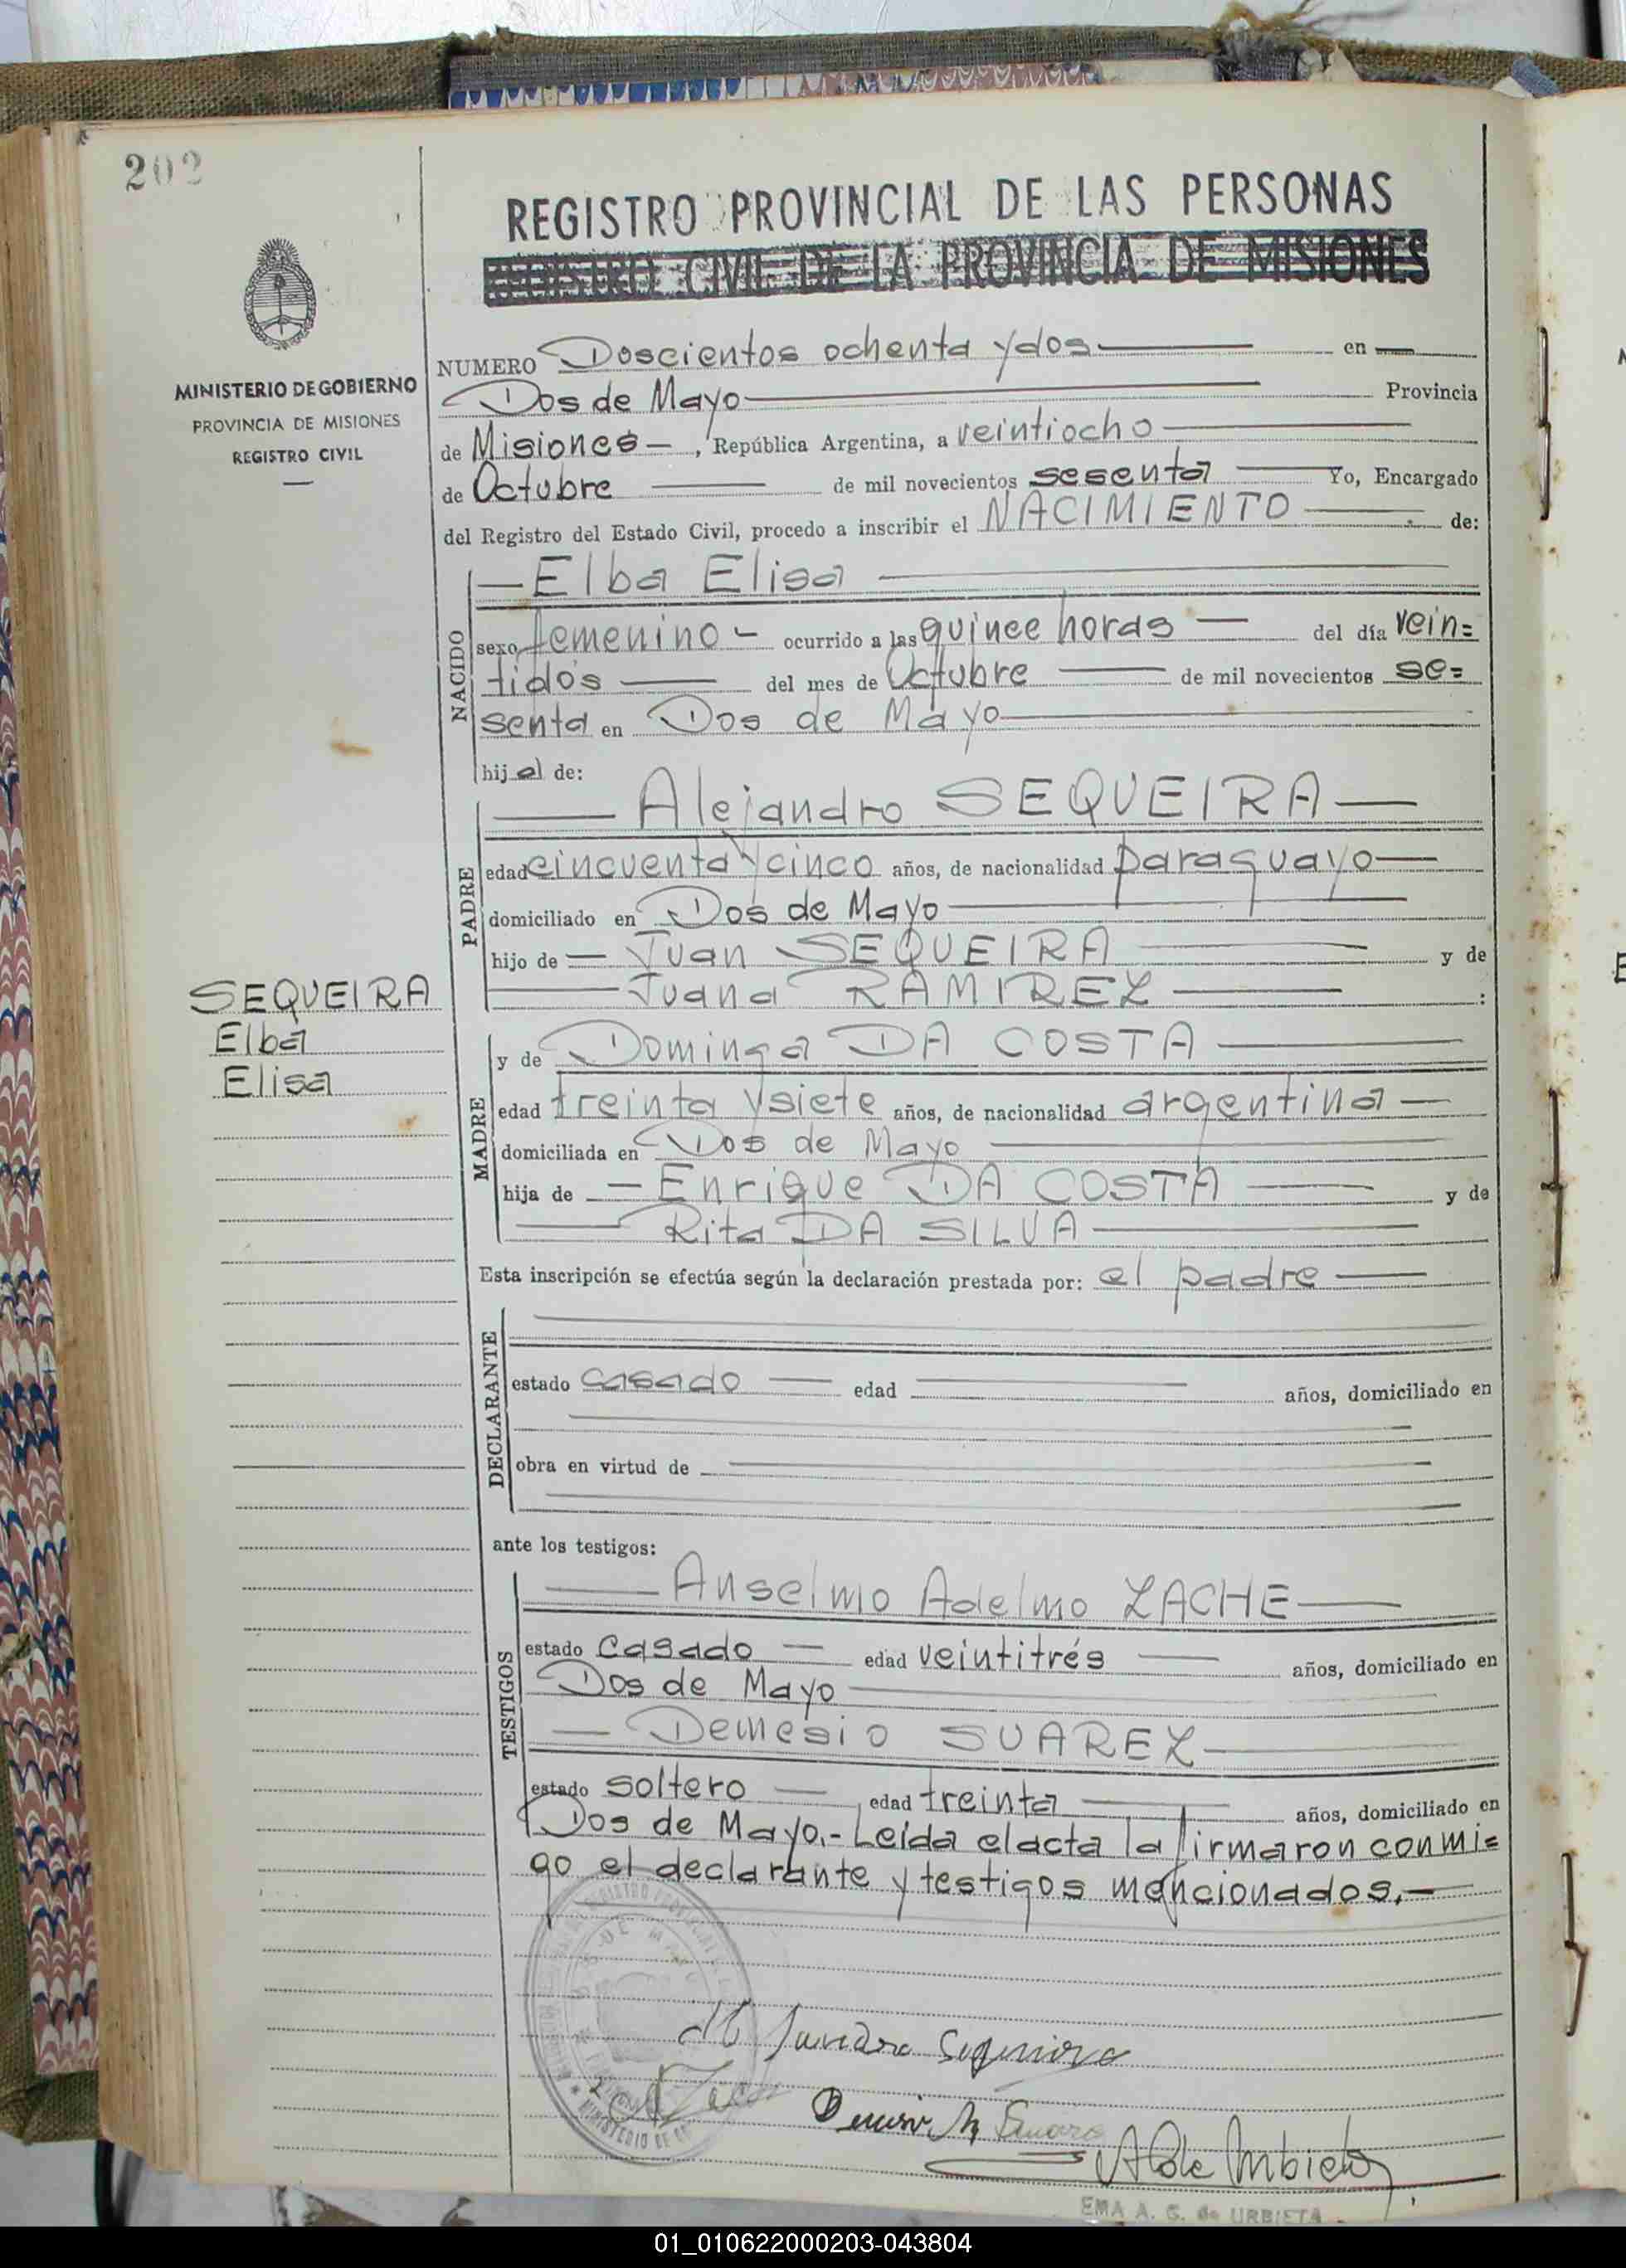 202
REGISTRO PROVINCIAL DE LAS PERSONAS
REGISTRO CIVIL DE LA PROVINCIA DE MISIONES
MINISTERIO DE GOBIERNO
PROVINCIA DE MISIONES
REGISTRO CIVIL
NUMERO Doscientos ochenta y dos en
Dos de Mayo Provincia
de Misiones, República Argentina, a veintiocho
de Octubre de mil novecientos sesenta Yo, Encargado
del Registro del Estado Civil, procedo a inscribir el NACIMIENTO de:
NACIDO
Elba Elisa
sexo femenino ocurrido a las quince horas del día vein=
tidós del mes de Octubre de mil novecientos se=
senta en Dos de Mayo
hija de:
PADRE
Alejandro SEQUEIRA
edad cincuenta y cinco años, de nacionalidad paraguayo
domiciliado en Dos de Mayo
hijo de Juan SEQUEIRA y de
Juana RAMIREZ :
SEQUEIRA
Elba
Elisa
MADRE
y de Dominga DA COSTA
edad treinta y siete años, de nacionalidad argentina
domiciliada en Dos de Mayo
hija de Enrique DA COSTA y de
Rita DA SILVA
Esta inscripción se efectúa según la declaración prestada por: el padre
DECLARANTE
estado casado edad años, domiciliado en
obra en virtud de
ante los testigos:
TESTIGOS
Anselmo Adelmo ZACHE
estado casado edad veintitrés años, domiciliado en
Dos de Mayo
Demesio SUAREZ
estado soltero edad treinta años, domiciliado en
Dos de Mayo.- Leída el acta la firmaron conmi=
go el declarante y testigos mencionados.-
EMA A. G. de URBIETA
01_010622000203-043804